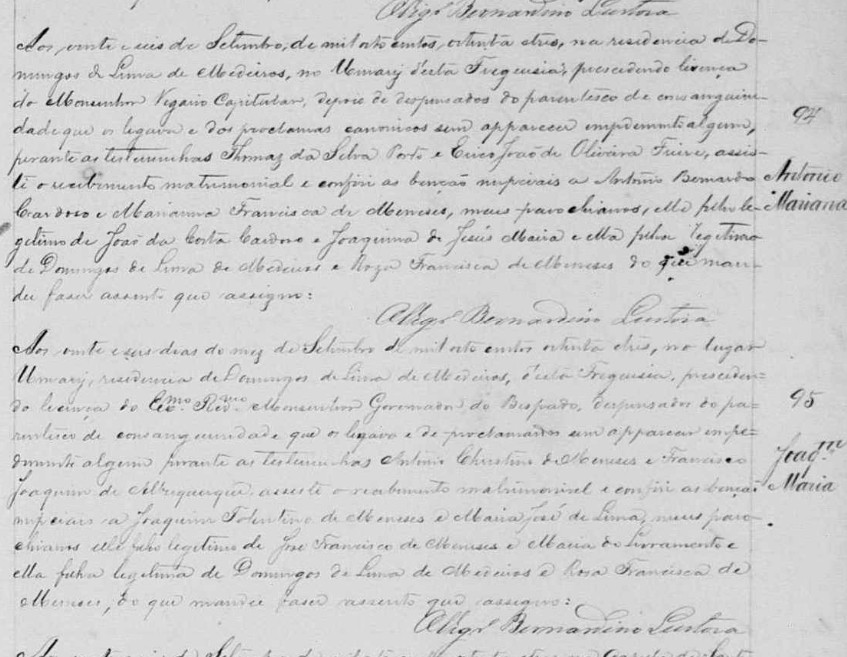 O Vigrº Bernardino Lustosa
Aos vinte e seis de Setembro, de mil oito centos, oitenta e tres, na residencia de Do-
mingos de Lima de Medeiros, no Umary d'esta Freguesia, prescedendo licença
do Monsenhor Vegario Capitular, depois de despensados do parentesco de consanguini-
dade que os legava e dos proclamas canonicos sem apparecer empedimento algum,
perante as testemunhas Thomaz da Silva Porto e João de Oliveira Freire, assis-
ti o recebimento matrimonial e conferi as bençãos nupciais a Antonio Bernardo
Cardoso e Marianna Francisca de Meneses, meus parochianos, elle filho le-
getimo de João da Costa Cardoso e Joaquina de Jesus Maria e ella filha legitima
de Domingos de Lima de Medeiros e Roza Francisca de Meneses do que man-
dei faser assento que assigno:
94
Antonio
Mariana
O Vigrº Bernardino Lustosa
Aos vinte e seis dias do mez de Setembro de mil oito centos oitenta e tres, no lugar
Umary, residencia de Domingos de Lima de Medeiros, d'esta Freguesia, presceden-
do licença do Exmo. Revmo. Monsenhor Governador do Bispado, despensados do pa-
rentesco de consanguenidade que os legava e de proclamas sem apparecer empe-
dimento algum perante as testemunhas Antonio Christino de Meneses e Francisco
Joaquim de Albuquerque, assisti o recebimento matrimonial e conferi as bençãos
nupciais a Joaquim Tolentino de Meneses e Maria José de Lima, meus paro-
chianos elle filho legitimo de José Francisco de Meneses e Maria do Livramento e
ella filha legitima de Domingos de Lima de Medeiros e Rosa Francisca de
Meneses, do que mandei faser assento que assigno:
95
Joaqm
Maria
O Vigrº Bernardino Lustosa